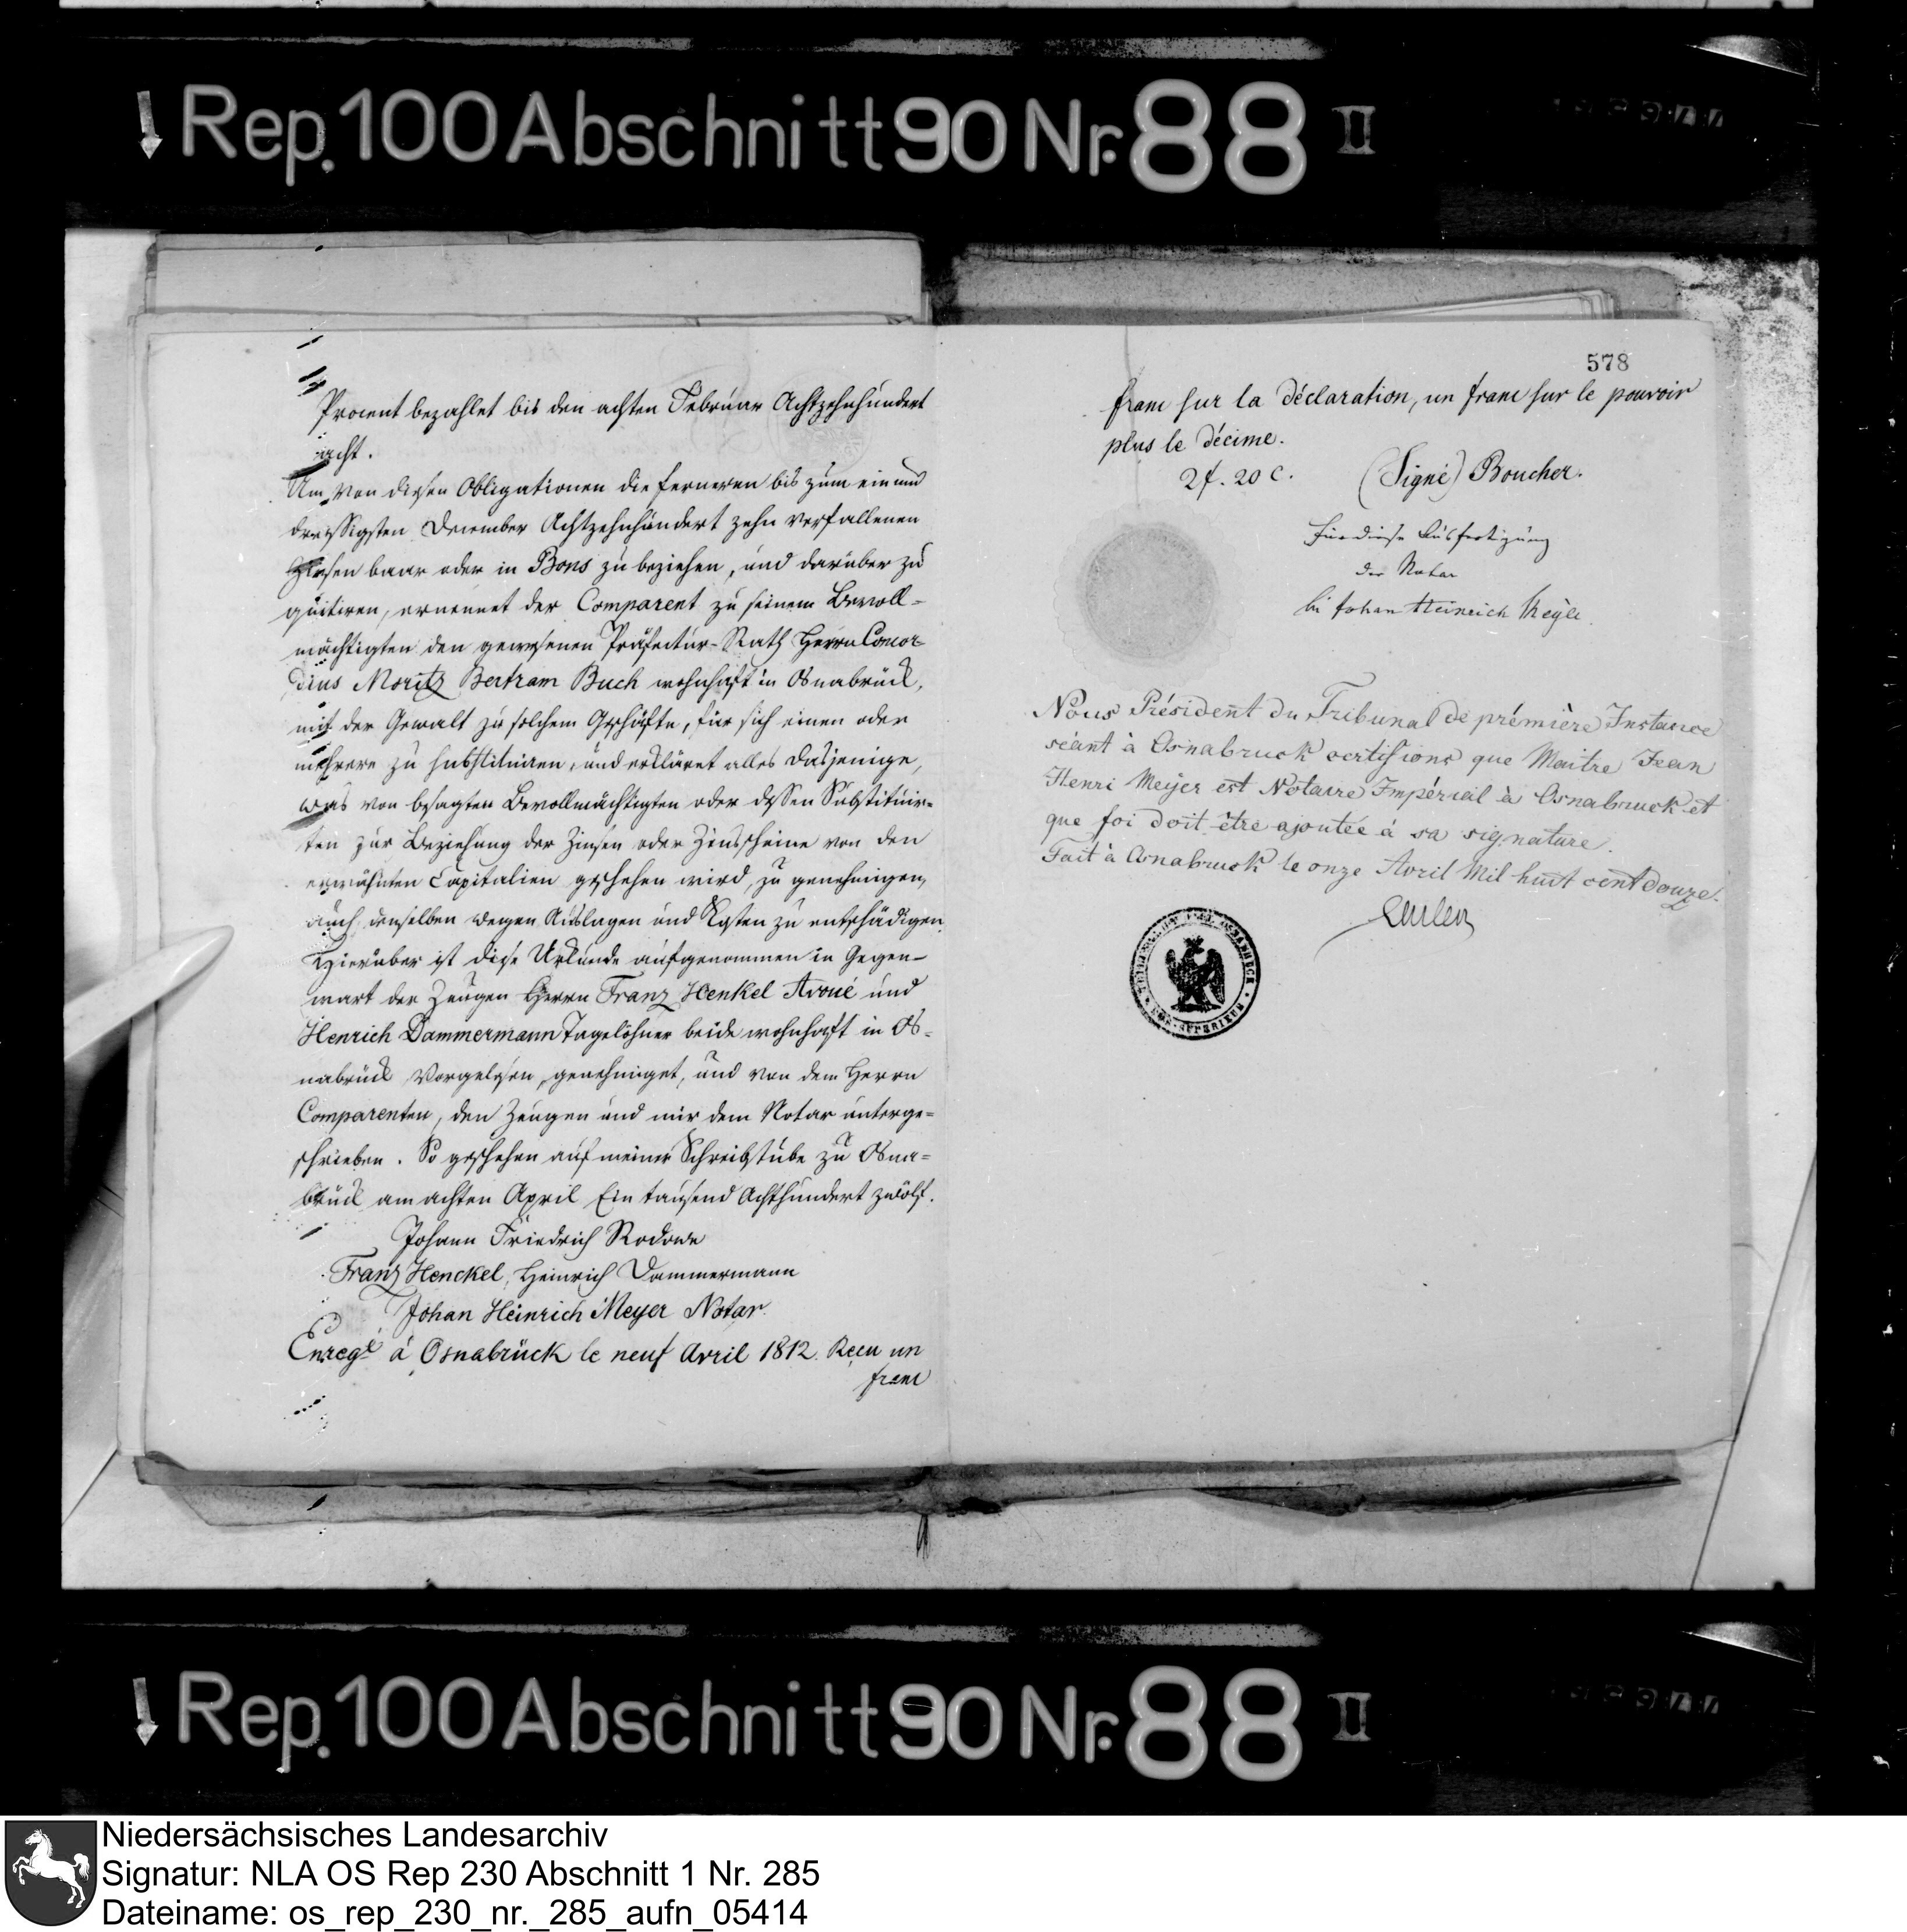 Rep. 100 Abschnitt 90 Nr. 88 II
Procent bezahlet bis den achten Februar Achtzehnhundert
acht.
Um von diesen Obligationen die ferneren bis zum ein und
dreyssigsten December Achtzehnhundert zehn verfallenen
Zinsen baar oder in Bons zu beziehen, und darüber zu
quitiren, ernennet der Comparent zu seinem Bevoll-
mächtigten den gewesenen Präfectur-Rath Herrn Concor
dius Moritz Bertram Buch wohnhaft in Osnabrück,
mit der Gewalt zu solchem Geschäfte, für sich einen oder
mehrere zu substituiren, und erkläret alles dasjenige,
was von besagten Bevollmächtigten oder dessen Substituir-
ten zur Beziehung der Zinsen oder Zinsscheine von den
erwähnten Capitalien geschehen wird, zu genehmigen,
auch denselben wegen Auslagen und Kosten zu entschädigen.
Hierüber ist diese Urkunde aufgenommen in Gegen-
wart der Zeugen Herrn Franz Henkel Avoué und
Henrich Dammermann Tagelöhner beide wohnhaft in Os-
nabrück vorgelesen, genehmiget, und von dem Herrn
Comparenten, den Zeugen und mir dem Notar unterge-
schrieben. So geschehen auf meiner Schreibstube zu Osna-
brück am achten April Ein tausend Achthundert zwölf.
Johann Friedrich Rodowe
Franz Henckel, Heinrich Dammermann
Johan Heinrich Meyer Notar.
Enregé à Osnabrück le neuf Avril 1812. Reçu un
franc
578
franc sur la déclaration, un franc sur le pouvoir
plus le décime.
2f. 20 c. (Signé) Boucher.
Für diese Ausfertigung
der Notar
Johan Heinrich Meyer
Nous Président du Tribunal de prémière Instance
séant à Osnabruck certifions que Maitre Jean
Henri Meyer est Notaire Impérial à Osnabruck et
que foi doit être ajoutée à sa signature.
Fait à Osnabruck le onze Avril Mil huit cent douze.
Rep. 100 Abschnitt 90 Nr. 88 II
Niedersächsisches Landesarchiv
Signatur: NLA OS Rep 230 Abschnitt 1 Nr. 285
Dateiname: os_rep_230_nr._285_aufn_05414